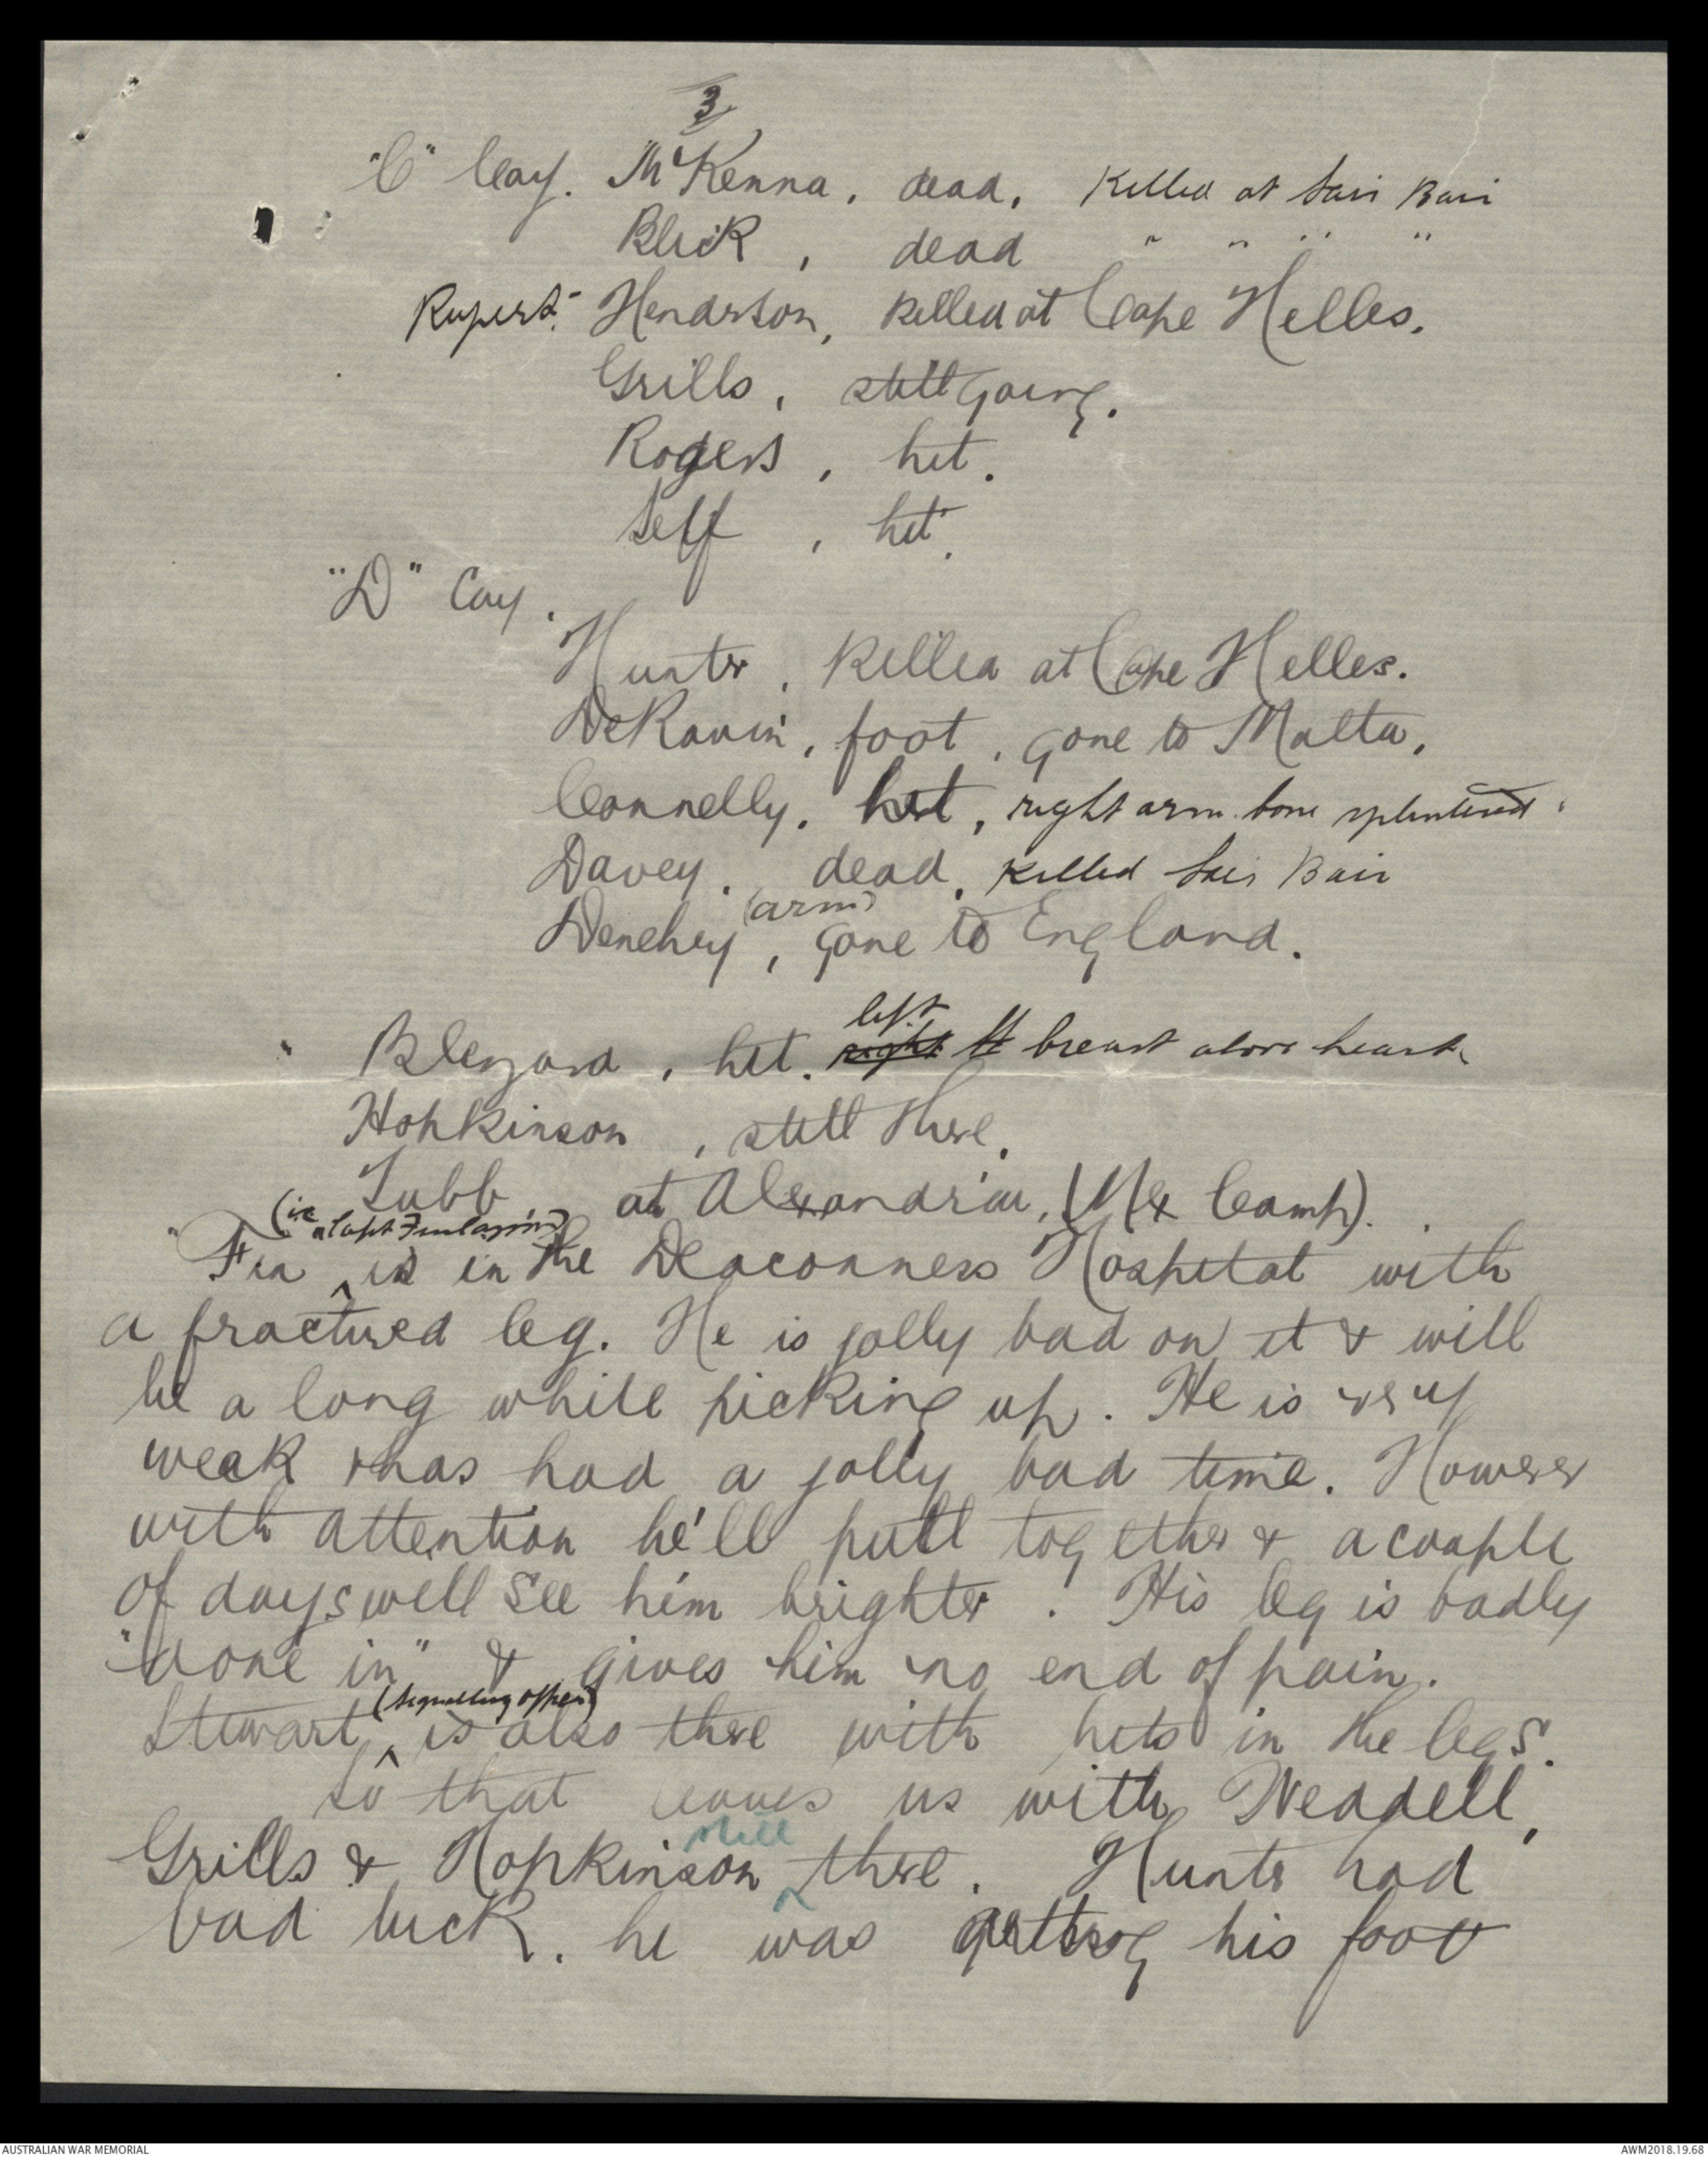 3
"C" Coy. McKenna, dead, Killed at Sari Bair
Blick, dead " " " "
Rupert. Henderson, killed at Cape Helles.
Grills, still going.
Rogers, hit.
Self, hit.
"D" Coy.
Hunter, killed at Cape Helles.
DeRavin, foot, gone to Malta.
Connelly, hit, right arm bone splintered.
Davey, dead, killed Sari Bair
Denehey (arm), gone to England.
Blezard, hit. left right breast above heart
Hopkinson, still there.
Tubb at Alexandria, (Mex Camp).
(ie Capt Finlayson)
"Fin is in the Deaconness Hospital with
a fractured leg. He is jolly bad on it & will
be a long while picking up. He is very
weak & has had a jolly bad time. However
with attention he'll pull together & a couple
of days will see him brighter. His leg is badly
"done in" & gives him no end of pain.
(signalling officer)
Stewart is also there with hits in the legs.
So that leaves us with Neadell,
still
Grills & Hopkinson there. Hunter had
bad luck. he was getting his foot
AUSTRALIAN WAR MEMORIAL AWM2018.19.68